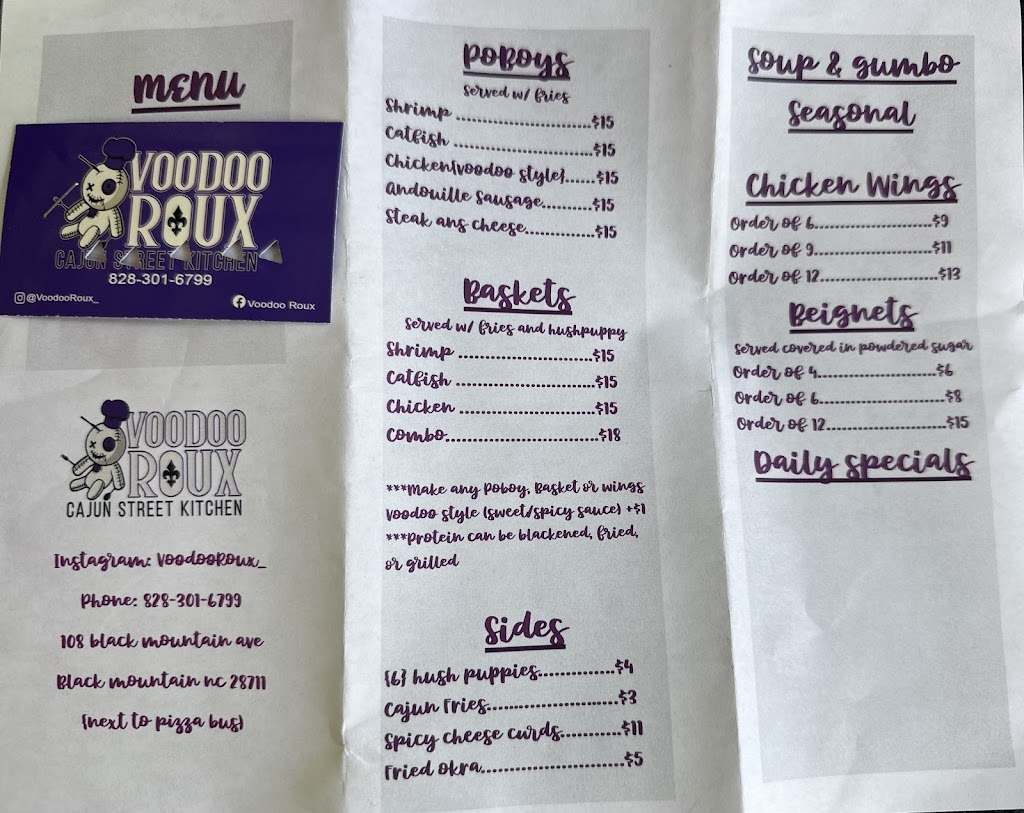 MENU
VOODOO
ROUX
CAJUN STREET KITCHEN
828-301-6799
@VoodooRoux_
Voodoo Roux
VOODOO
ROUX
CAJUN STREET KITCHEN
Instagram: VoodooRoux_
Phone: 828-301-6799
108 black mountain ave
Black mountain nc 28711
(next to pizza bus)
PoBoys
Served w/ fries
Shrimp ........................$15
Catfish .........................$15
Chicken(voodoo style)......$15
Andouille Sausage............$15
Steak ans cheese............$15
Baskets
Served w/ fries and hushpuppy
Shrimp ........................$15
Catfish ........................$15
Chicken ........................$15
Combo..............................$18
***Make any Poboy, Basket or wings
voodoo style (sweet/spicy sauce) +$1
***Protein can be blackened, fried,
or grilled
Sides
(6) hush puppies.............$4
Cajun Fries......................$3
Spicy cheese curds...........$11
Fried Okra........................$5
Soup & gumbo
Seasonal
Chicken Wings
Order of 6.....................$9
Order of 9.....................$11
Order of 12.....................$13
Beignets
Served covered in powdered sugar
Order of 4.....................$6
Order of 6.....................$8
Order of 12.....................$15
Daily specials